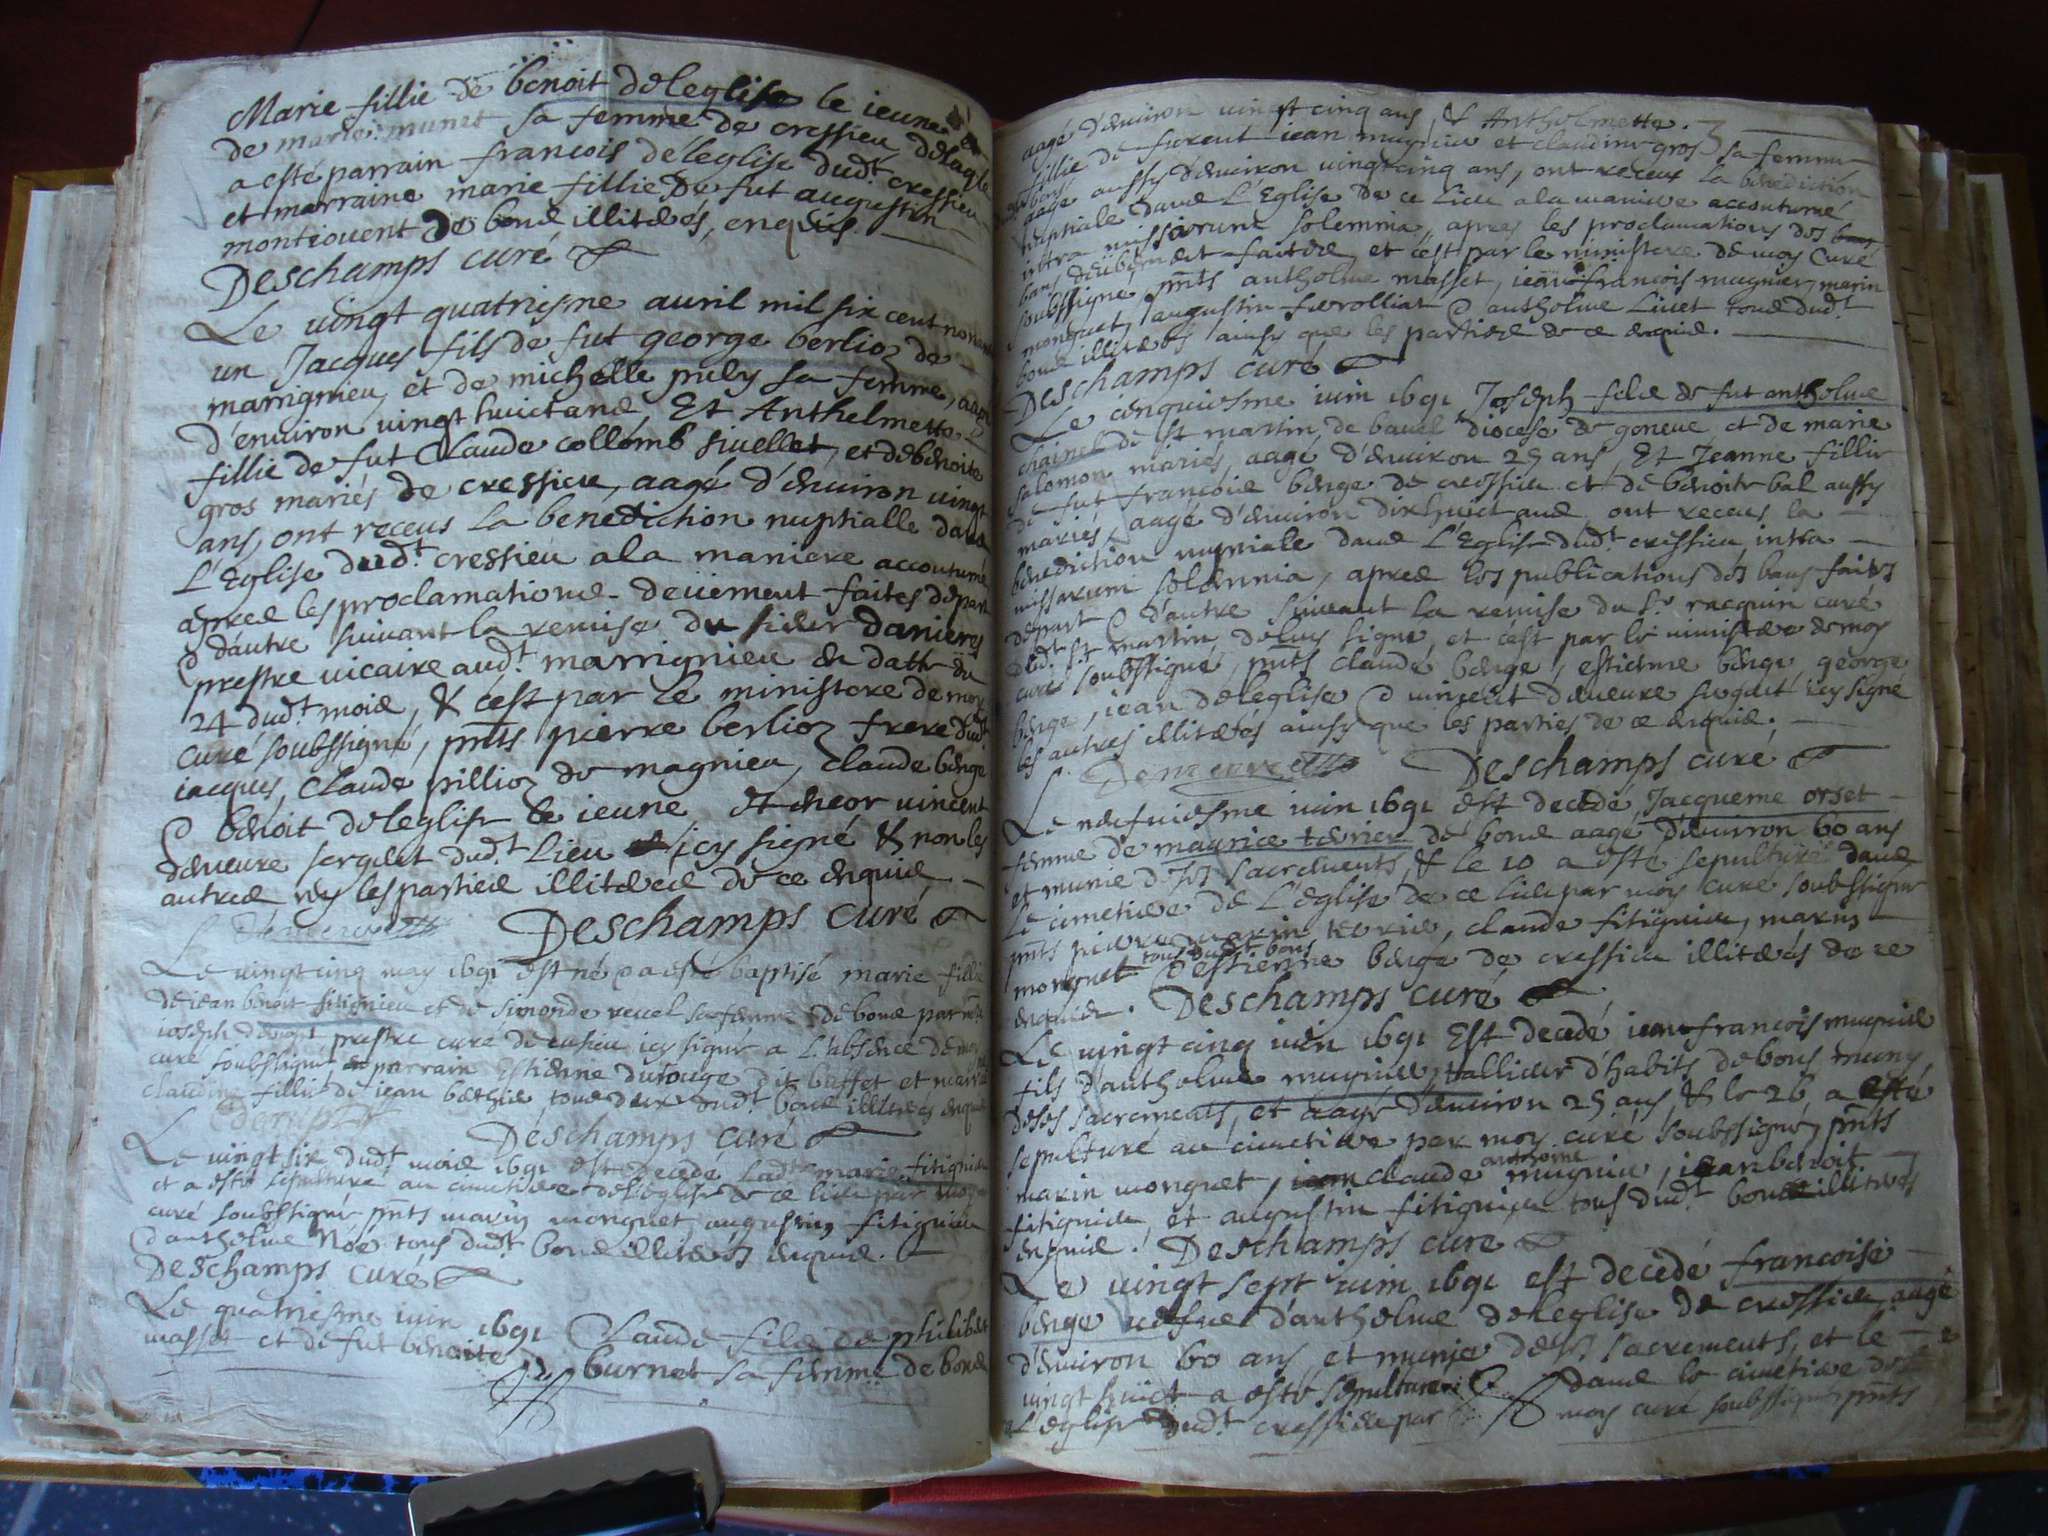 Marie fillie de benoit deleglise le ieune
de marie munet sa femme de cressieu delaqle
a esté parrain francois deleglise dudt cressieu
et marraine marie fillie de fut augustin
montiouent de bons illiterés, enquis.
Deschamps curé
Le vingt quatriesme auril mil six cent nonante
un Jacques fils de fut george berlioz de
marrignieu, et de michelle puly sa femme, aagé
d'enuiron vingt huict ans, Et Anthelmette
fillie de fut Claude collomb siuellet, et de benoite
gros mariés de cressieu, aagé d'enuiron vingt
ans, ont receus la benediction nuptialle dans
L'Eglise dudt cressieu ala maniere accoutumé
apres les proclamations deüement faites depart
& dautre suiuant la remise du sieur danieres
prestre uicaire audt marrignieu en datte du
24 dudt mois, & c'est par le ministere de moy
curé soubssigné, pnts pierre berlioz frere dudt
iacques, Claude pillioz de magnieu, claude berge
& benoit deleglise le ieune, et encor vincent
demeure sergent dudt Lieu icy signé & non les
autres ny les parties illiterées de ce enquis
Demeure
Deschamps curé
Le vingt cinq may 1691 est né & a esté baptisé marie fillie
de iean benoit fitignieu et de simonde reuel sa femme de bons par mre
ioseph prestre curé de cusieu icy signé a l'absence de moy
curé soubssigné parrain Estienne dufouge dit buffet et marraine
claudine fillie de iean berthier tous deux dudt bons illiterés enquis
Deschamps curé
Le vingt six dudt mois 1691 est decedé ladte marie fitignieu
et a esté sepulturé au cimetiere de l'eglise de ce lieu par moy
curé soubssigné pnts marin monguet augustin fitignieu
& antholme Noé tous dudt bons illiterés enquis.
Deschamps curé
Le quatriesme iuin 1691 Claude fils de philibert
masset et de fut benoite burnet sa femme de bons
aagé d'enuiron vingt cinq ans, & Antholmette
fillie de furent iean mugnier et claudine gros sa femme
de bons aagé aussy d'enuiron vingt cinq ans, ont receus la benediction
nuptiale dans L'Eglise de ce Lieu ala maniere accoutumé
intra missarum solemnia, apres les proclamations des
bans deüement faites, et c'est par le ministere de moy Curé
soubssigné pnts antholme masset, iean francois mugnier, marin
monguet, augustin furolliat & antholme Liuet tous dudt
bons illiterés ainsy que les parties de ce enquis.
Deschamps curé
Le cinquiesme iuin 1691 Joseph fils de fut antholme
chainel de st martin de bauel diocese de geneue et de marie
salomon mariés, aagé d'enuiron 25 ans, Et Jeanne fillie
de fut francois berge de cressieu et de benoite bal aussy
mariés, aagé d'enuiron dixhuict ans ont receus la
benediction nuptiale dans L'Eglise dudt cressieu intra
missarum solemnia, apres les publications des bans faites
depart & d'autre suiuant la remise du Sr racquin curé
dudt st martin deluy signé, et c'est par le ministere de moy
curé soubssigné, pnts claude berge, estienne berge, george
berge, iean deleglise & vincent demeure sergent icy signé
les autres illiterés ainsy que les parties de ce enquis.
Demeure
Deschamps curé
Le neufuiesme iuin 1691 est decedé Jacqueme orset
femme de maurice terrier de bons aagé d'enuiron 60 ans
et munie de ses sacrements, & le 10 a esté sepulturé dans
Le cimetiere de L'eglise de ce lieu par moy curé soubssigné
pnts pierre marin terrier, claude fitignieu, marin
monguet tous dudt bons & estienne berge de cressieu illiterés de ce
enquis. Deschamps curé
Le vingt cinq iuin 1691 Est decedé iean francois mugnier
fils d'antholme mugnier, tallieur d'habits de bons muny
de ses sacrements, et aagé d'enuiron 25 ans, & le 26 a esté
sepulturé au cimetiere par moy curé soubssigné, pnts
marin monguet, claude antholme mugnier, iean benoit
fitignieu, et augustin fitignieu tous dudt bons illiterés
enquis. Deschamps curé
Le vingt sept iuin 1691 est decedé francoise
berge uefue d'antholme deleglise de cressieu, aagé
d'enuiron 60 ans, et munie de ses sacrements, et le
vingt huict a esté sepulturé dans le cimetiere de
L'eglise dudt cressieu par moy curé soubssigné pnts